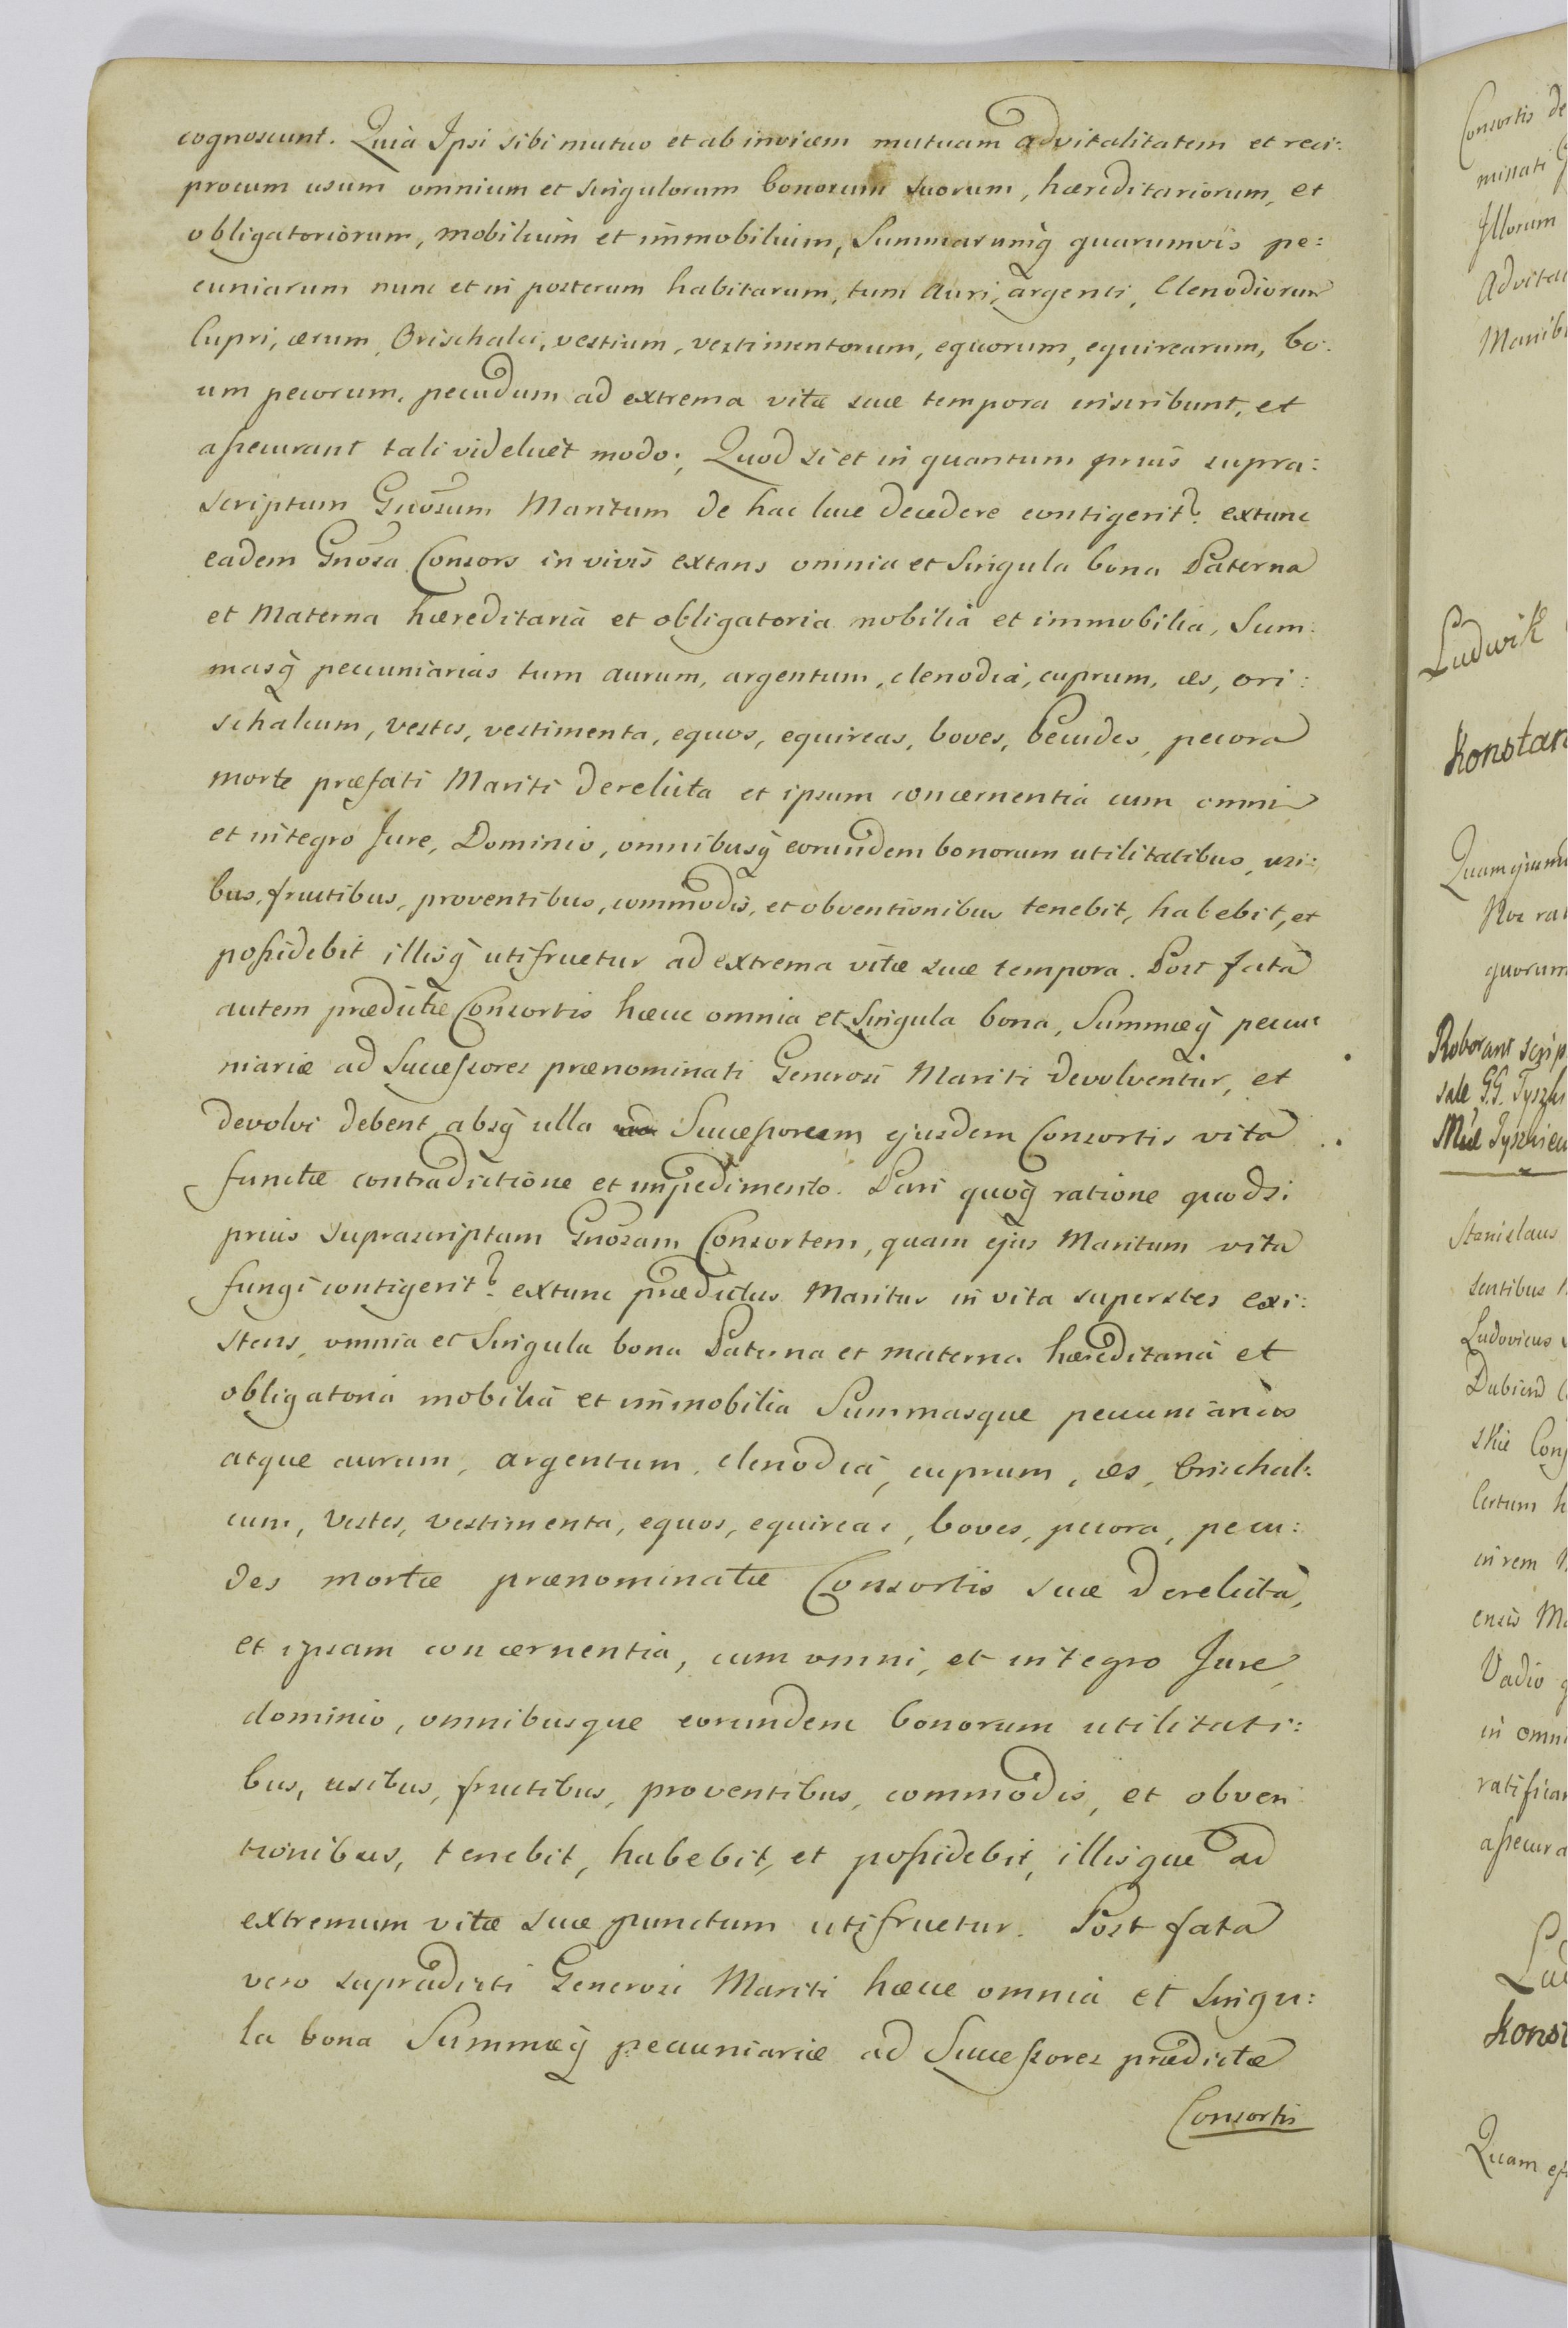 cognoscunt. Quia Ipsi sibi mutuo et ab invicem mutuam advitalitatem et reci:
procum usum omnium et singulorum bonorum suorum, hæreditariorum, et
obligatoriorum, mobilium et immobilium, Summarumq̃ quarumvis pe:
cuniarum nunc et in posterum habitarum, tum Auri, argenti, Clenodiorum
Cupri, ærum, Orischalci, vestium, vestimentorum, equorum, equirearum, bo:
um pecorum, pecudum ad extrema vitæ suæ tempora inscribunt, et
assecurant tali videlicet modo; Quod si et in quantum prius supra:
scriptum Gnõsum Maritum de hac luce decedere contigerit? extunc
eadem Gnõsa Consors in vivis extans omnia et Singula bona Paterna
et Materna hæreditaria et obligatoria mobilia et immobilia, Sum:
masq̃ pecuniarias tum aurum, argentum, clenodia, cuprum, æs, ori:
schalcum, vestes, vestimenta, equos, equireas, boves, pecudes, pecora
morte præfati Mariti derelicta et ipsum concernentia cum omni
et integro Jure, Dominio, omnibusq̃ eorundem bonorum utilitatibus, usi:
bus, fructibus, proventibus, commodis, et obventionibus tenebit, habebit, et
possidebit illisq̃ utifruetur ad extrema vitæ suæ tempora. Post fata
autem prædictæ Consortis hæcce omnia et Singula bona, Summæq̃ pecu:
niariæ ad Successores prænominati Generosi Mariti devolventur, et
devolvi debent absq̃ ulla Successorum ejusdem Consortis vita
functæ contradictione et impedimento. Pari quoq̃ ratione quodsi
prius suprascriptam Gnõsam Consortem, quam ejus Maritum vita
fungi contigerit? extunc prædictus Maritus in vita superstes exi:
stens, omnia et Singula bona Paterna et materna hæreditaria et
obligatoria mobilia et immobilia Summasque pecuniarias
atque aurum, argentum, clenodia, cuprum, æs, Orischal:
cum, Vestes, vestimenta, equos, equireas, boves, pecora, pecu:
des mortæ prænominatæ Consortis suæ derelicta,
et ipsam concernentia, cum omni, et integro Jure,
dominio, omnibusque eorundem bonorum utilitati:
bus, usibus, fructibus, proventibus, commodis, et obven
tionibus, tenebit, habebit, et possidebit, illisque ad
extremum vitæ suæ punctum utifruetur. Post fata
vero supradicti Generosi Mariti hæcce omnia et Singu:
la bona Summæq̃ pecuniariæ ad Successores prædictæ
Consortis
Consortis de
minati
Illorum
Advital
Manib
Ludwik
Konstan
Quam
Nos rat
quorum
Roborant scrip
sale G.G. Tyszk
Stanislaus
sentibus
Ludovicus
skie Con
in rem
Vadio
in omni
ratifica
assecura
Lud
Konst
Quam